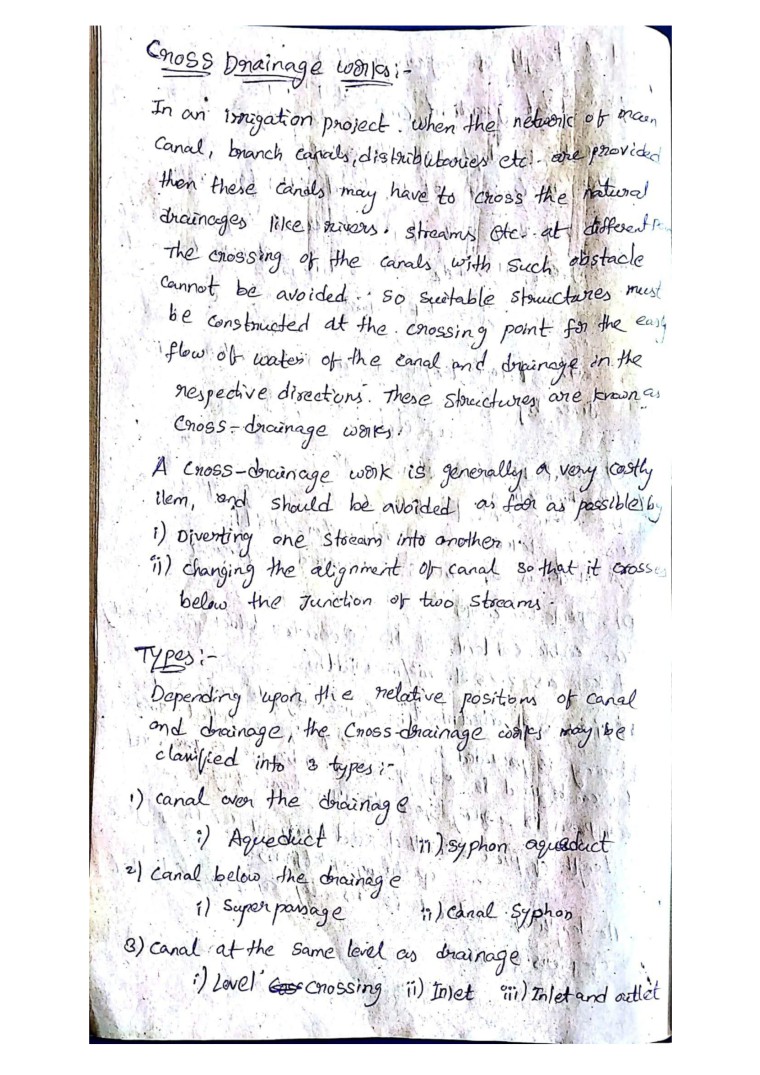 Cross Drainage works :-
In an irrigation project. when the network of main
Canal, branch canals, distributaries etc. are provided
then these canals may have to cross the natural
drainages like rivers, streams etc. at different
The crossing of the canals with such obstacle
cannot be avoided. so suitable structures must
be constructed at the crossing point for the easy
flow of water of the canal and drainage in the
respective directions. These structures are known as
Cross-drainage works.
A cross-drainage work is generally a very costly
item, and should be avoided as far as possible by
i) Diverting one stream into another
ii) changing the alignment of canal so that it crosses
below the junction of two streams.
Types :-
Depending upon the relative positions of canal
and drainage, the Cross-drainage works may be
classified into 3 types :-
1) canal over the drainage
i) Aqueduct ii) Syphon aqueduct
2) Canal below the drainage
i) Super passage ii) Canal Syphon
3) Canal at the same level as drainage
i) Level crossing ii) Inlet iii) Inlet and outlet